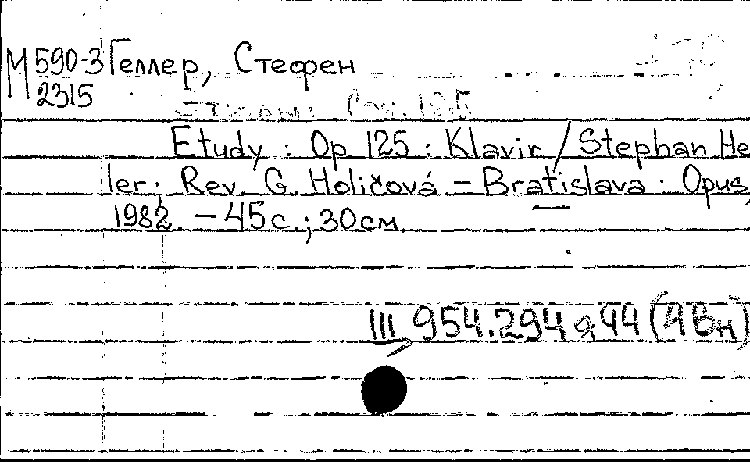 М 590-3 Геллер, Стефен
2315
Этюды: Соч. 125
Etudy : Op 125 : Klavir / Stephan He
ler; Rev. G. Holičová – Bratislava : Opus,
1982. – 45 с.; 30 см.
III 954.294 я 44 (4 Вн)